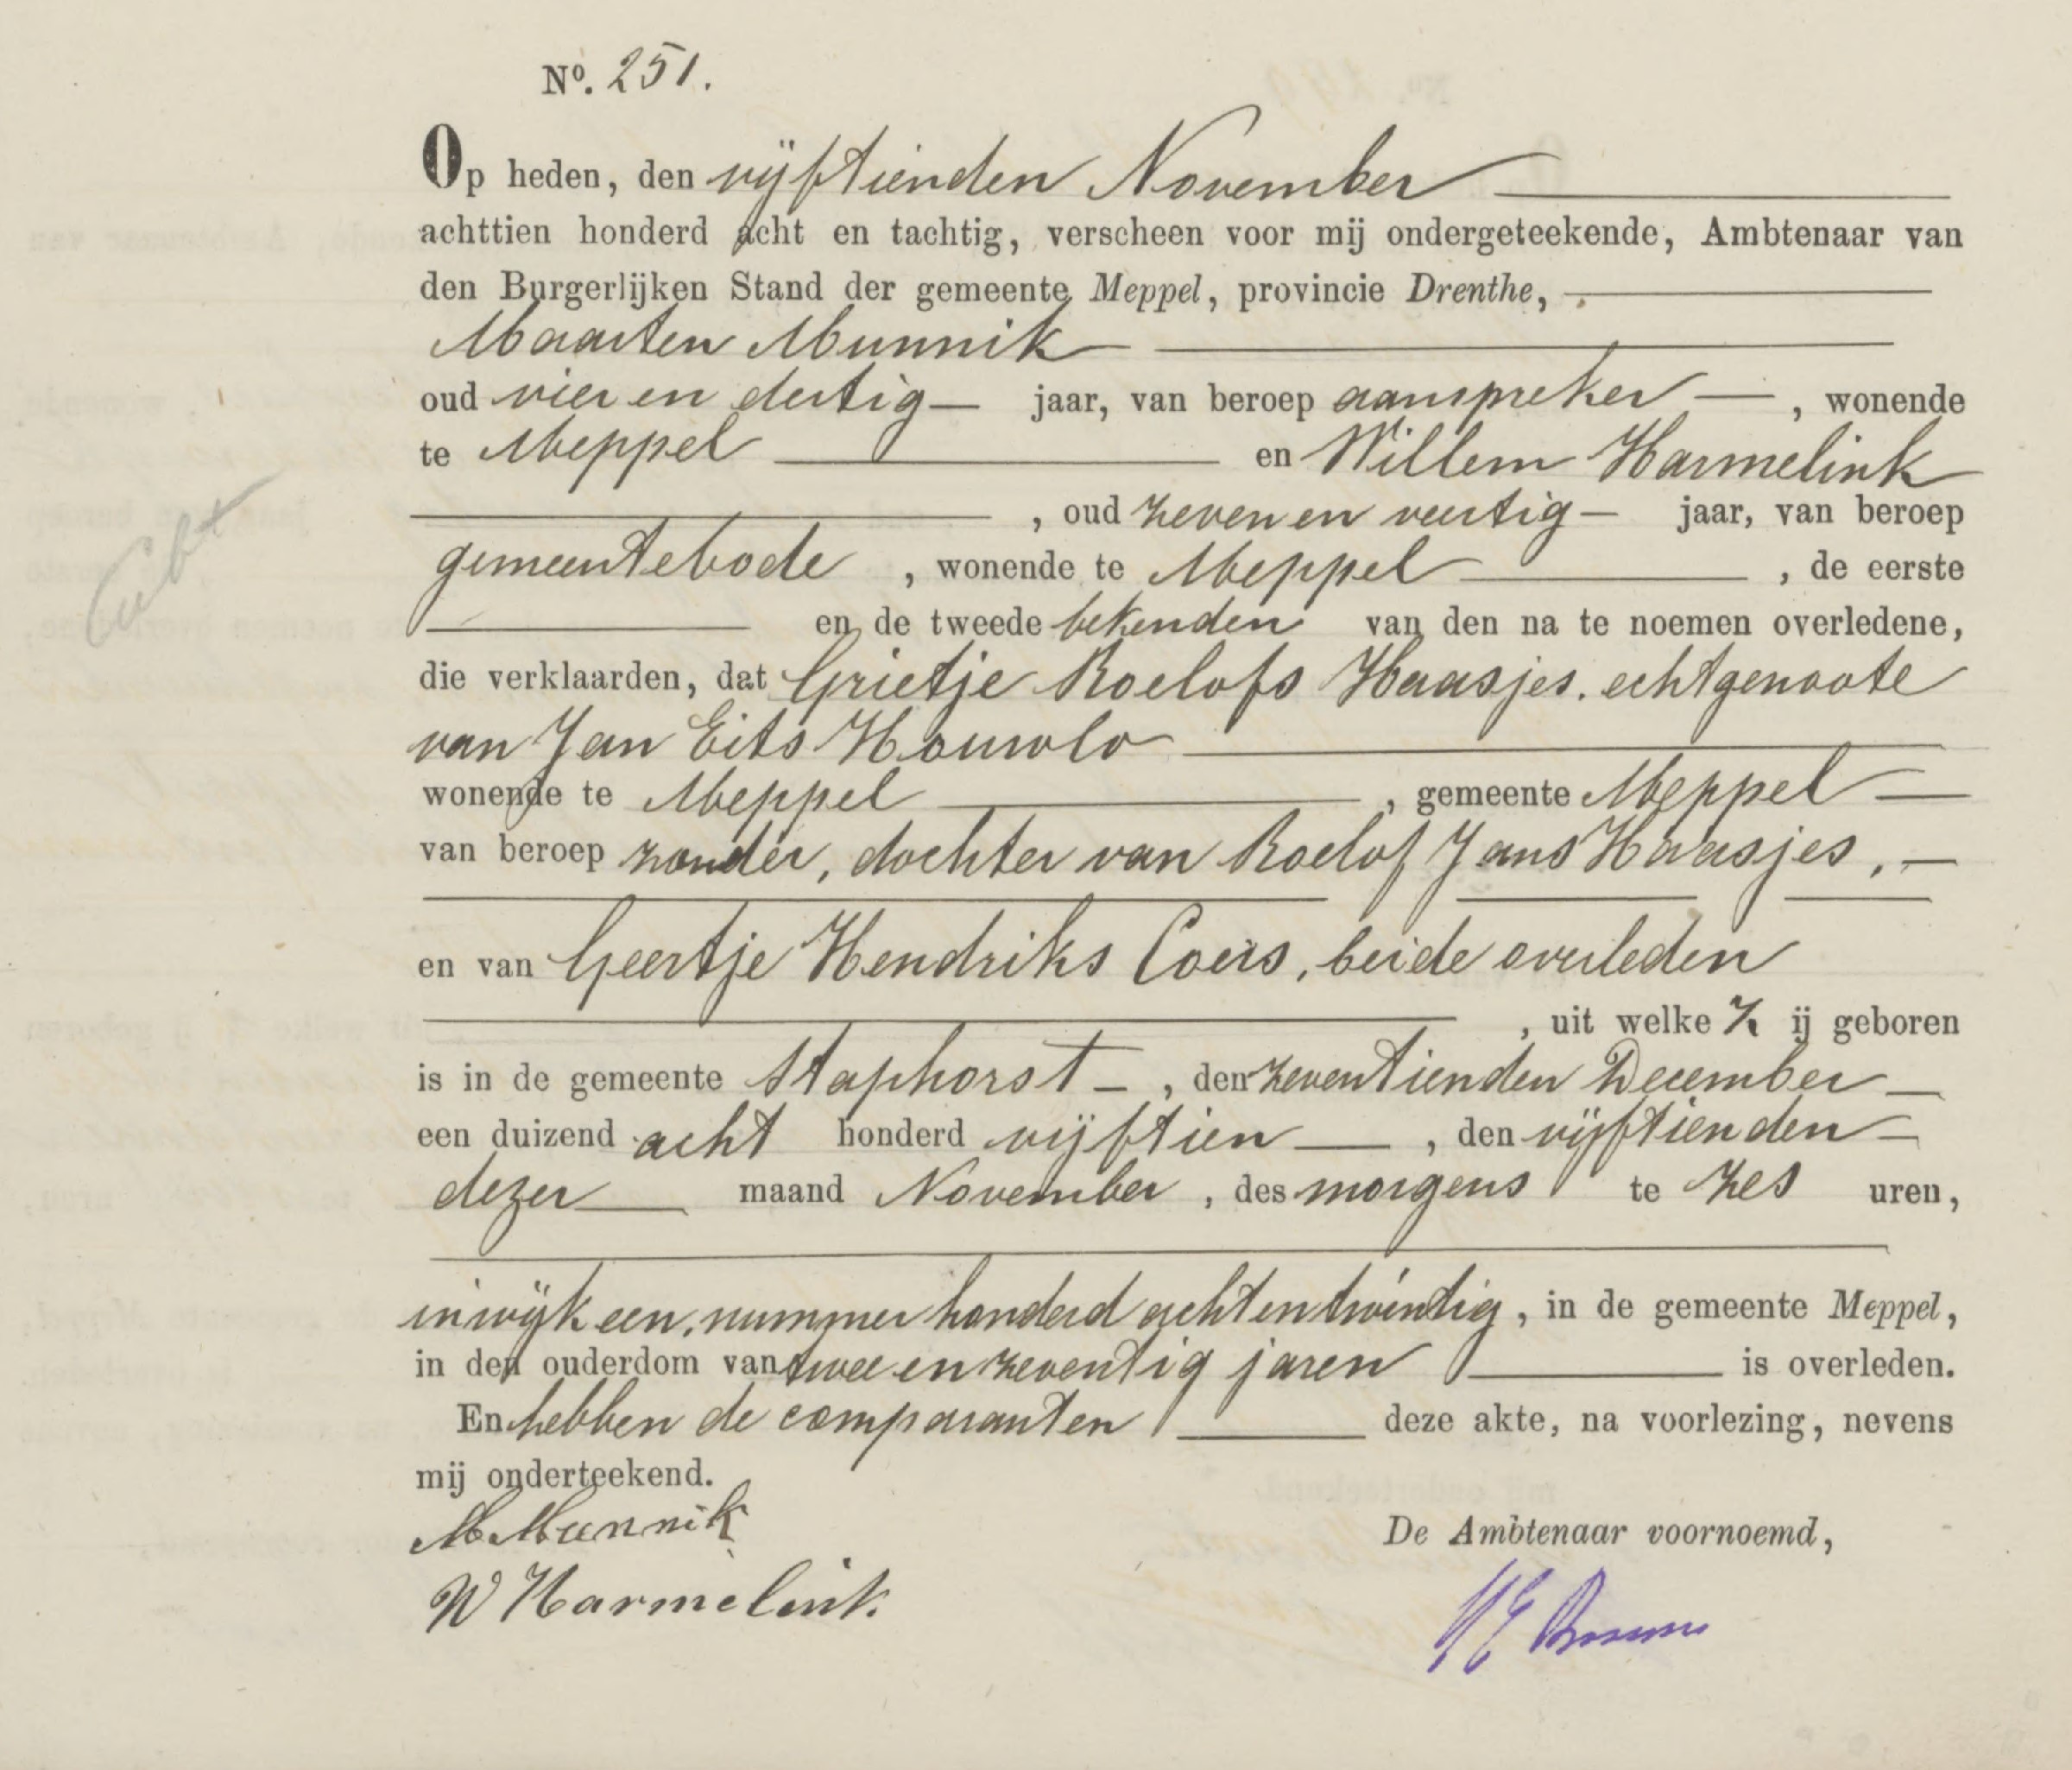 No. 251.
Op heden, den vijftienden November
achttien honderd acht en tachtig, verscheen voor mij ondergeteekende, Ambtenaar van
den Burgerlijken Stand der gemeente Meppel, provincie Drenthe,
Maarten Munnik
oud vier en dertig jaar, van beroep aanspreker, wonende
te Meppel en Willem Harmelink
, oud zeven en veertig jaar, van beroep
gemeentebode, wonende te Meppel, de eerste
en de tweede bekenden van den na te noemen overledene,
die verklaarden, dat Grietje Roelofs Haasjes, echtgenoote
van Jan Eits Houwlo
wonende te Meppel, gemeente Meppel
van beroep zonder, dochter van Roelof Jans Haasjes,
en van Geertje Hendriks Coers, beide overleden
, uit welke Zij geboren
is in de gemeente Staphorst, den zeventienden December
een duizend acht honderd vijftien, den vijftienden
dezer maand November, des morgens te zes uren,
in wijk een, nummer honderd acht en twintig, in de gemeente Meppel,
in den ouderdom van twee en zeventig jaren is overleden.
En hebben de comparanten deze akte, na voorlezing, nevens
mij onderteekend.
M Munnik
De Ambtenaar voornoemd,
W Harmelink.